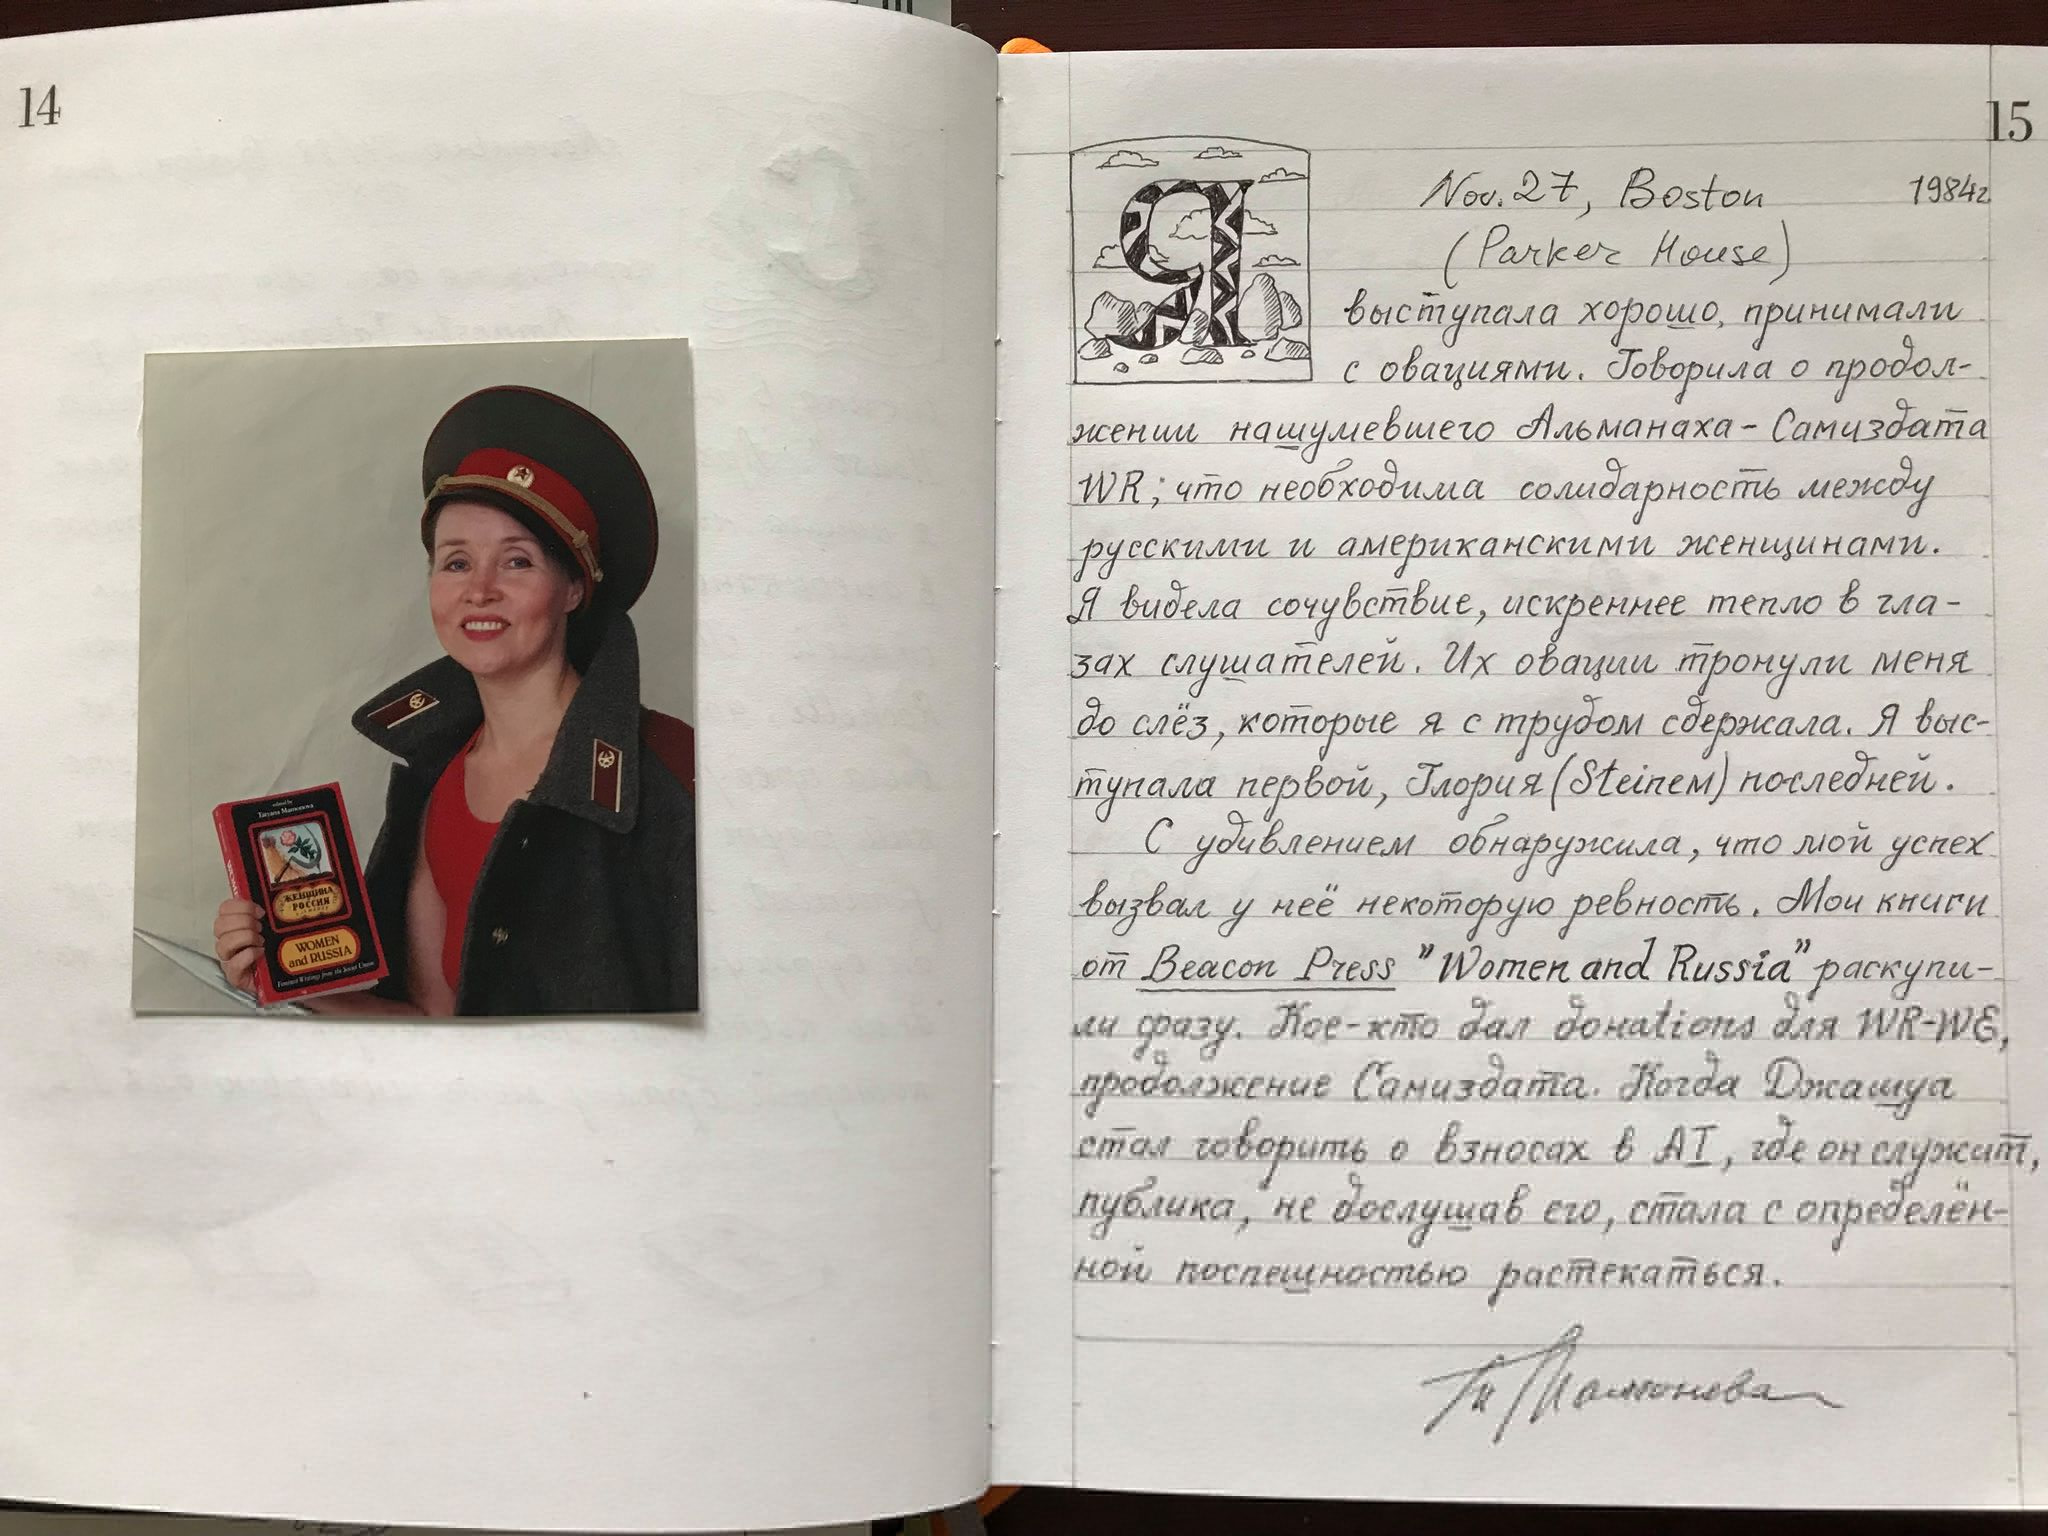 14
edited by
Tatyana Mamonova
ЖЕНЩИНА
РОССИЯ
WOMEN
and RUSSIA
Feminist Writings from the Soviet Union
15
Nov. 27, Boston 1984г
(Parker House)
Я выступала хорошо, принимали
с овациями. Говорила о продол-
жении нашумевшего Альманаха-Самиздата
WR; что необходима солидарность между
русскими и американскими женщинами.
Я видела сочувствие, искреннее тепло в гла-
зах слушателей. Их овации тронули меня
до слёз, которые я с трудом сдержала. Я выс-
тупала первой, Глория (Steinem) последней.
С удивлением обнаружила, что мой успех
вызвал у неё некоторую ревность. Мои книги
от Beacon Press "Women and Russia" раскупи-
ли сразу. Кое-кто дал донations для WR-WE,
продолжение Самиздата. Когда Джашуа
стал говорить о взносах в AI, где он служит,
публика, не дослушав его, стала с определён-
ной поспешностью растекаться.
Мамонова